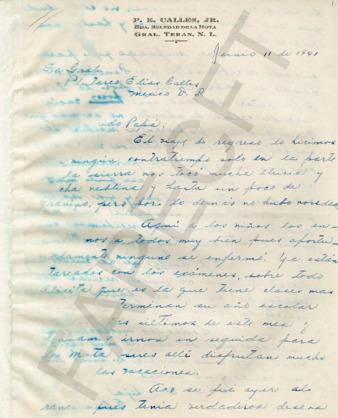 P. E. CALLES, JR.
HDA. SOLEDAD DE LA MOTA
GRAL. TERAN, N. L.
Junio 11 de 1941
Sr. Gral.
Plutarco Elías Calles
México D. F.
Papá:
El viaje de regreso lo hicimos
ningún contratiempo solo en la parte
la sierra nos tocó mucha lluvia y
neblina y hasta un poco de
granizo, pero por lo demás no hubo novedad
Aquí a los niños los en-
a todos muy bien pues afortu-
ninguno se enfermó. Ya están
con los exámenes, sobre todo
que es la que tiene clases mas
terminan su año escolar
últimos de este mes y
en seguida para
la Mota, pues allí disfrutan mucho
las vacaciones.
se fué ayer al
pues tenía verdaderos deseos
FAPECFT